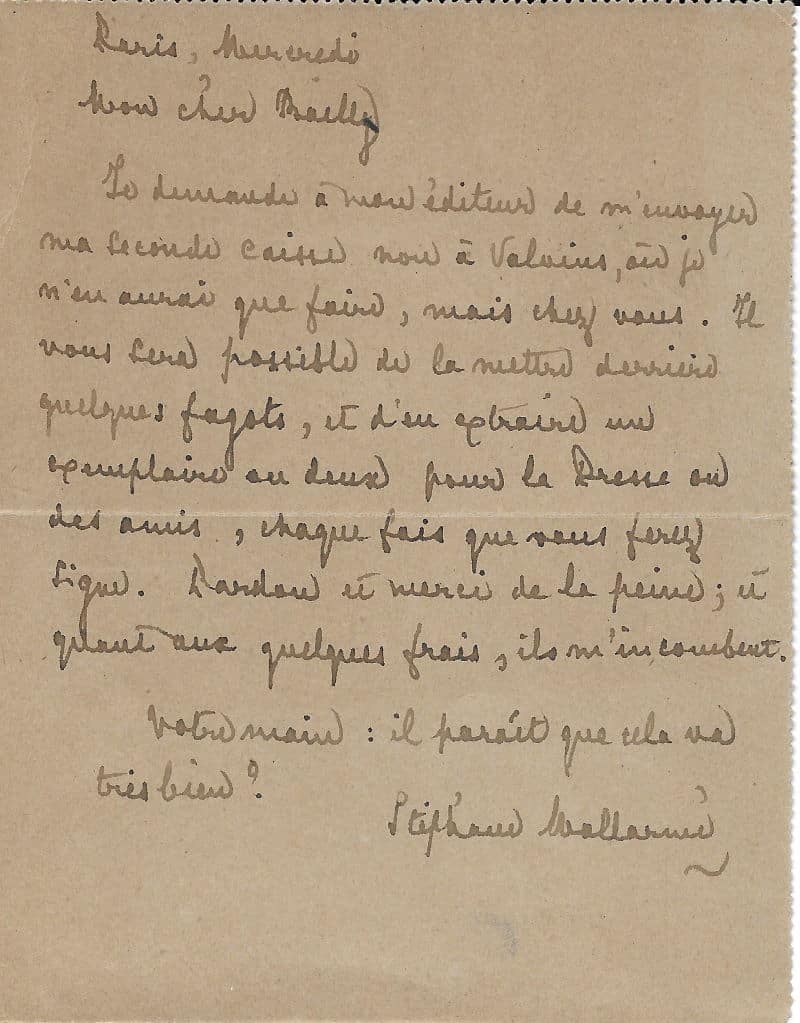 Paris, Mercredi
Mon cher Bailly
Je demande à mon éditeur de m'envoyer
ma seconde caisse non à Valvins, où je
n'en aurai que faire, mais chez vous. Il
vous sera possible de la mettre derrière
quelques fagots, et d'en extraire un
exemplaire ou deux pour la Presse ou
des amis, chaque fois que vous ferez
signe. Pardon et merci de la peine; et
quant aux quelques frais, ils m'incombent.
Votre main : il paraît que cela va
très bien ?
Stéphane Mallarmé